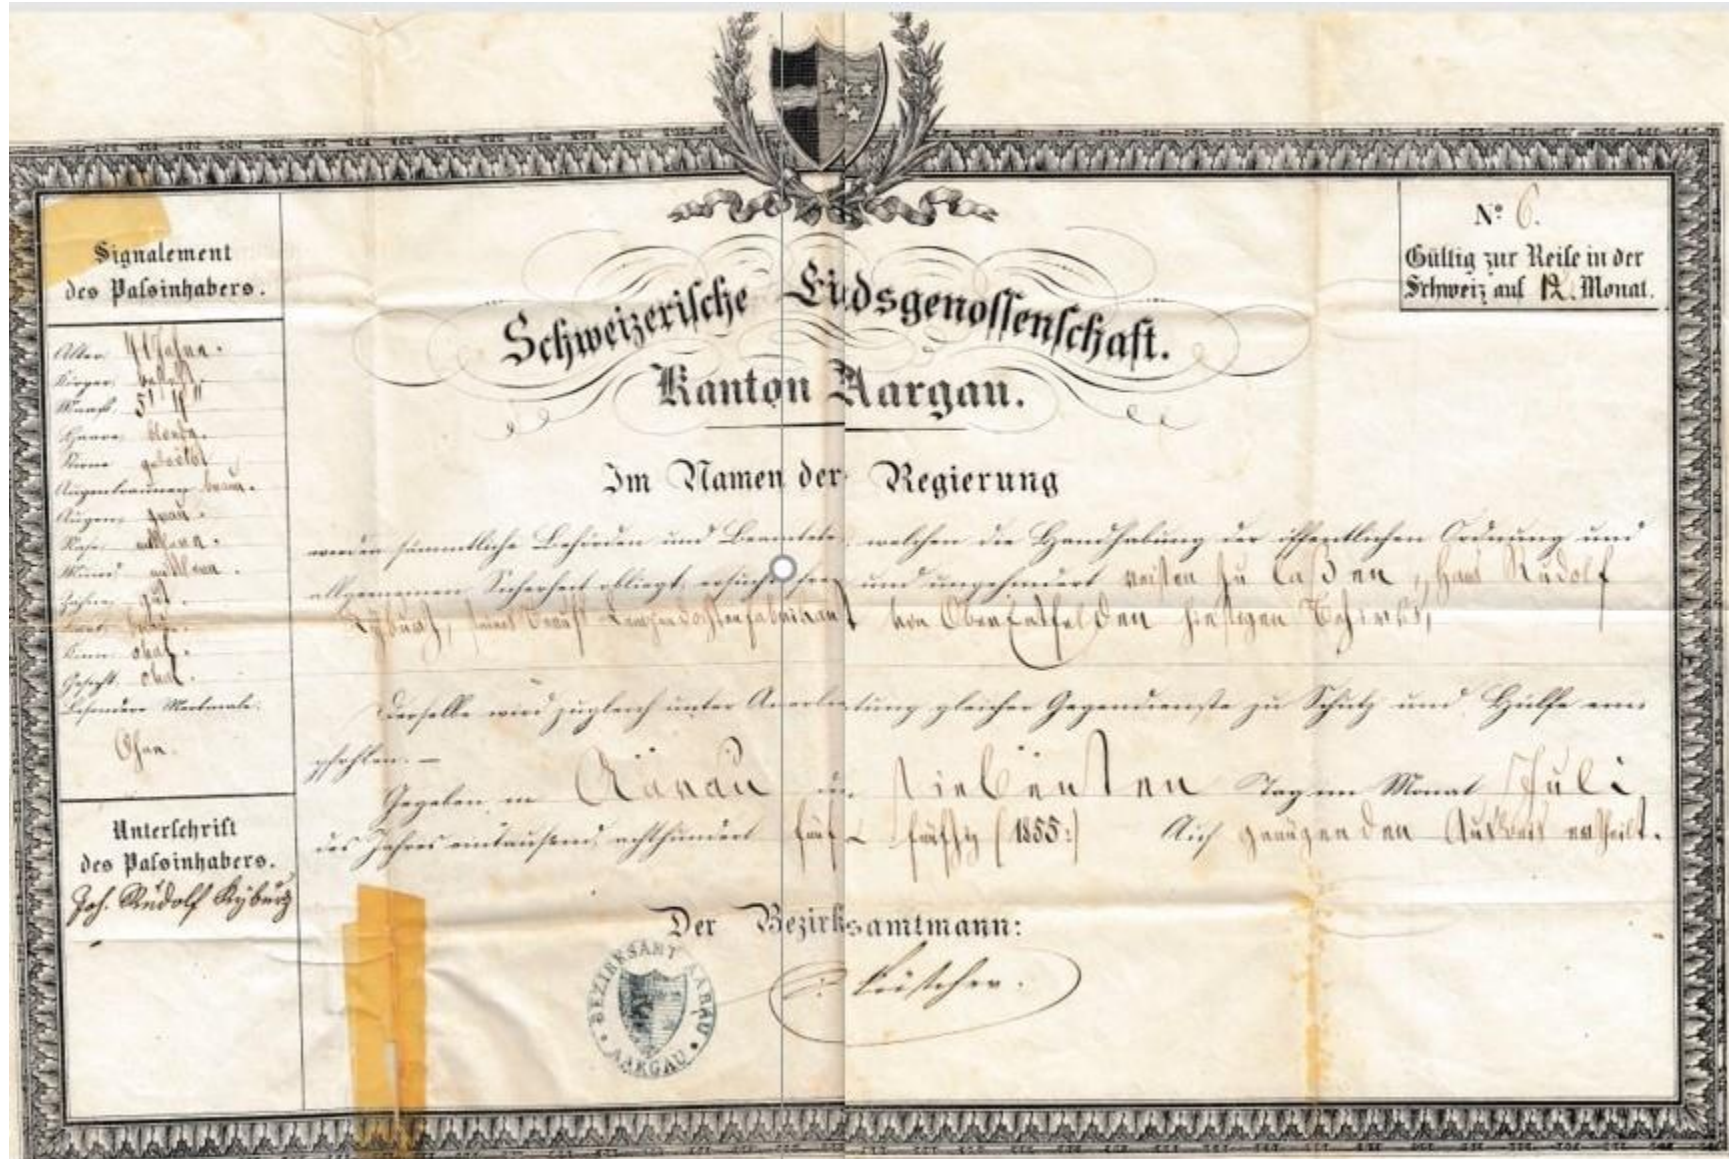 Signalement
des Passinhabers.
Alter: 41 Jahre.
Körper: besetzt
Haare: blonde.
Stirne gewölbt
Augenbraunen braun.
Augen: grau.
Nase:
Mund:
Zähne: gut.
Kinn: oval.
Gesicht: oval.
Besondere Merkmale:
Ohne.
Unterschrift
des Passinhabers.
Joh. Rudolf Kyburz
Schweizerische Eidsgenossenschaft.
Kanton Aargau.
Nº 6.
Gültig zur Reise in der
Schweiz auf 12. Monat.
Im Namen der Regierung
werden sämmtliche Behörden und Beamtete, welchen die Handhabung der öffentlichen Ordnung und
allgemeinen Sicherheit obliegt, ersucht, frey und ungehindert reisen zu laßen, Hans Rudolf
Kyburz, seines Berufs von Oberentfelden hiesigen Bezirks,
Derselbe wird zugleich unter Anerbietung gleicher Gegendienste zu Schutz und Hülfe em
pfohlen. —
Gegeben in Aarau den siebenten Tag im Monat Juli
des Jahres eintausend, achthundert fünf & fünfzig (1855:) Auf genügenden Ausweis ertheilt.
Der Bezirksamtmann:
Lüscher.
BEZIRKSAMT AARAU
AARGAU